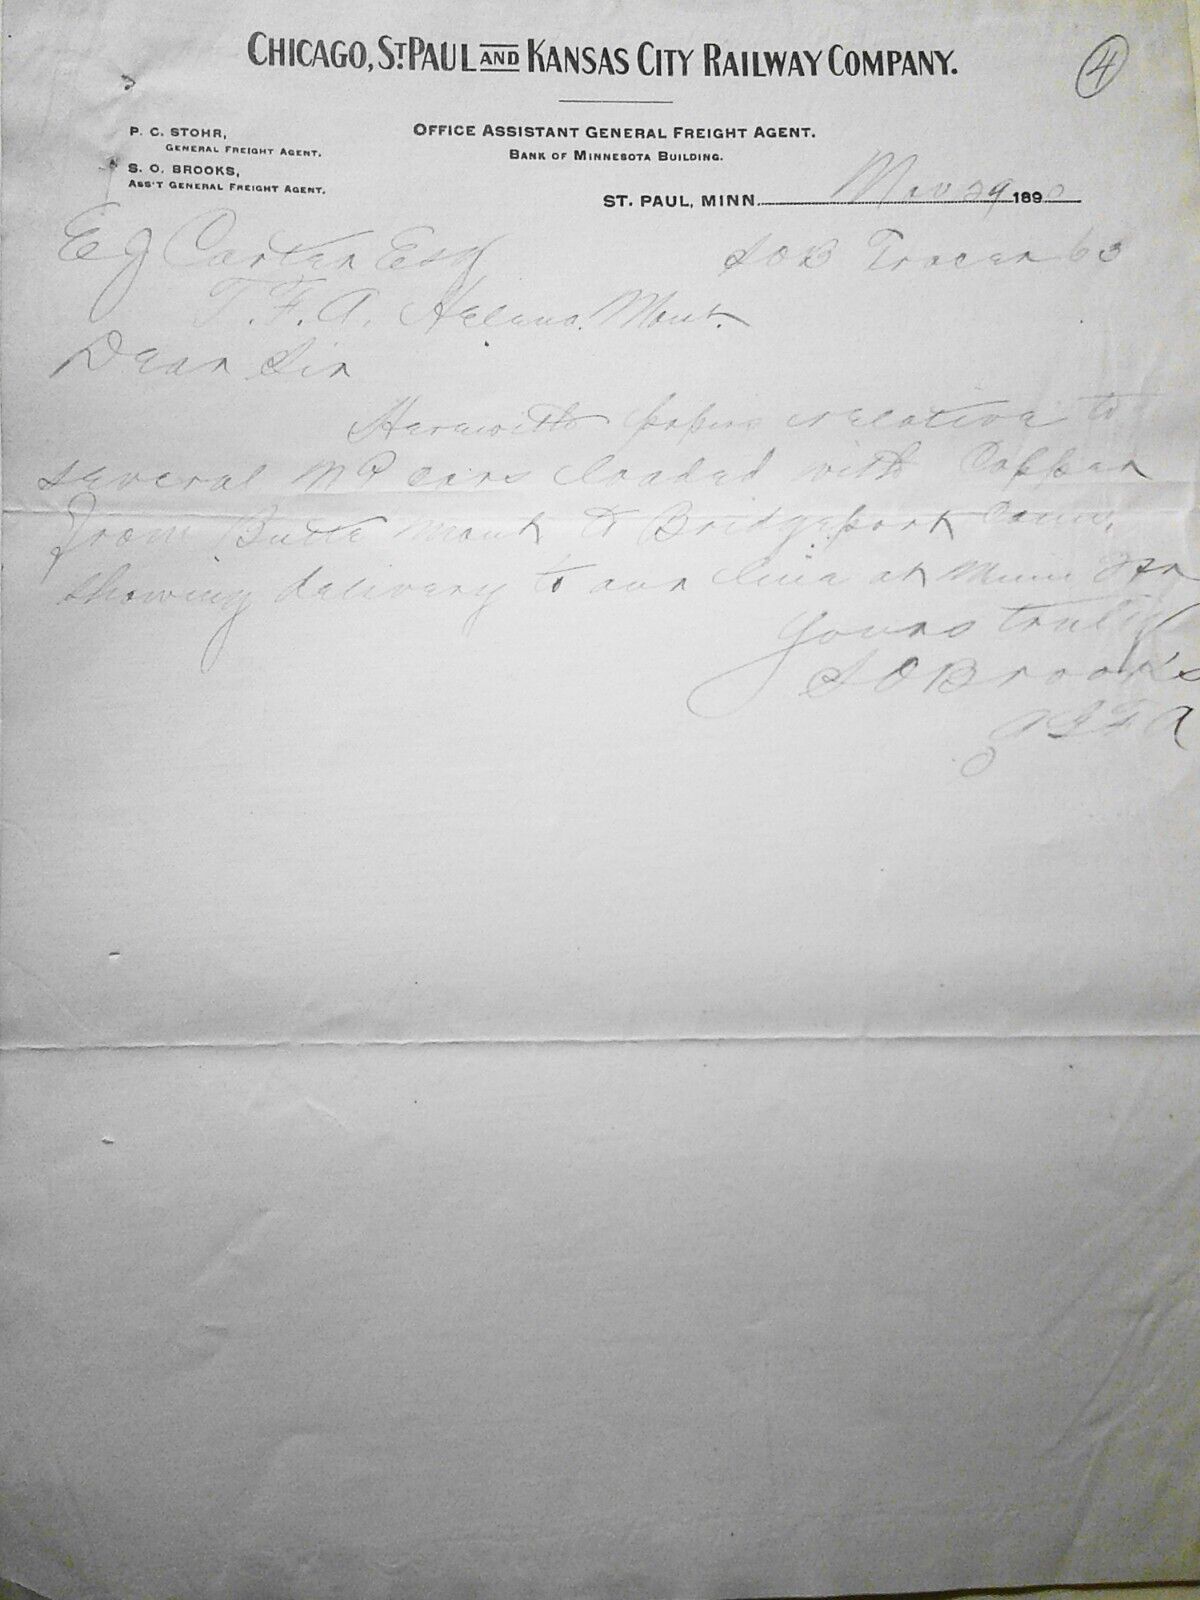 CHICAGO, ST. PAUL AND KANSAS CITY RAILWAY COMPANY.
4
P. C. STOHR,
GENERAL FREIGHT AGENT.
S. O. BROOKS,
ASS'T GENERAL FREIGHT AGENT.
OFFICE ASSISTANT GENERAL FREIGHT AGENT.
BANK OF MINNESOTA BUILDING.
ST. PAUL, MINN. 29 1890
E J Carter Esq
SOB Tracer 63
T. F. A. Helena. Mont.
Dear Sir
Herewith papers relative to
several N P cars loaded with Copper
from Butte Mont to Bridgeport Conn.
showing delivery to our line at Minn Tfr
Yours truly
S O Brooks
A G F A